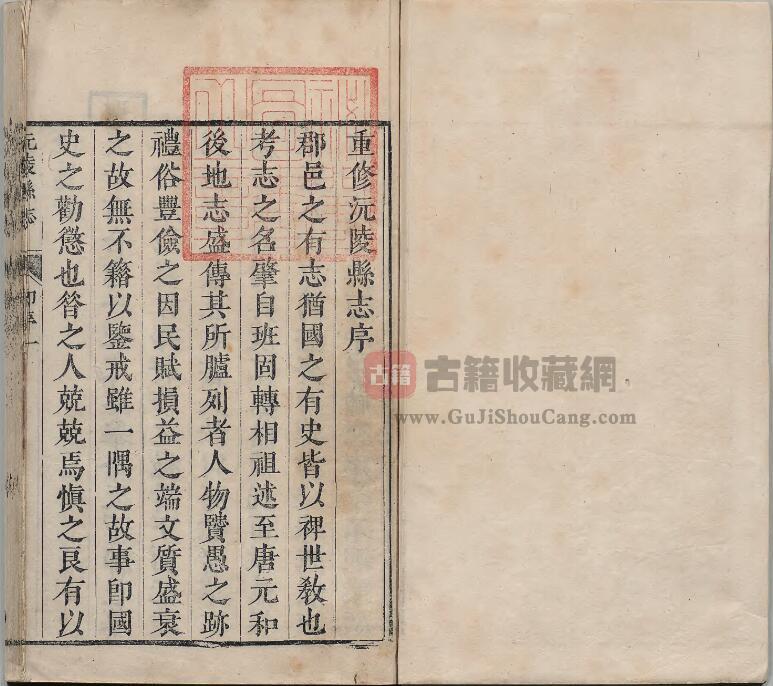 重修沅陵縣志序
郡邑之有志猶國之有史皆以裨世敎也
考志之名肇自班固轉相祖述至唐元和
後地志盛傳其所臚列者人物賢愚之跡
禮俗豐儉之因民賦損益之端文質盛衰
之故無不籍以鑒戒雖一隅之故事卽國
史之勸懲也昝之人兢兢焉愼之良有以
沅陵縣志
古籍 古籍收藏網
www.GuJiShouCang.com